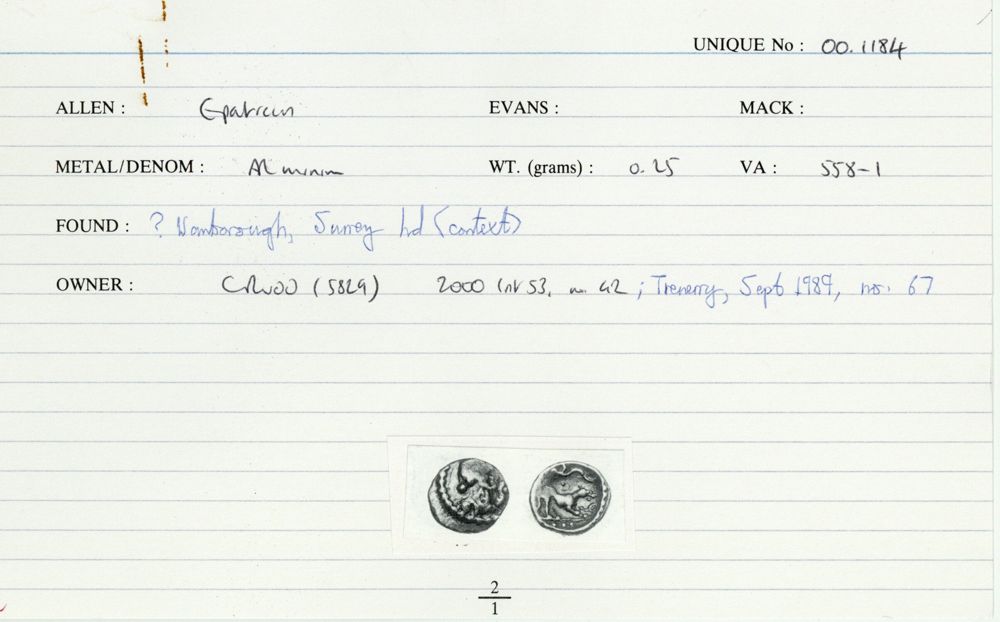 UNIQUE No : 00.1184
ALLEN : Epaticcus EVANS : MACK :
METAL/DENOM : AR minim WT. (grams) : 0.25 VA : 558-1
FOUND : ? Wanborough, Surrey hd (context)
OWNER : (5829) 2000 53, 42 ; Trenerry, Sept 1989, no. 67
2
1